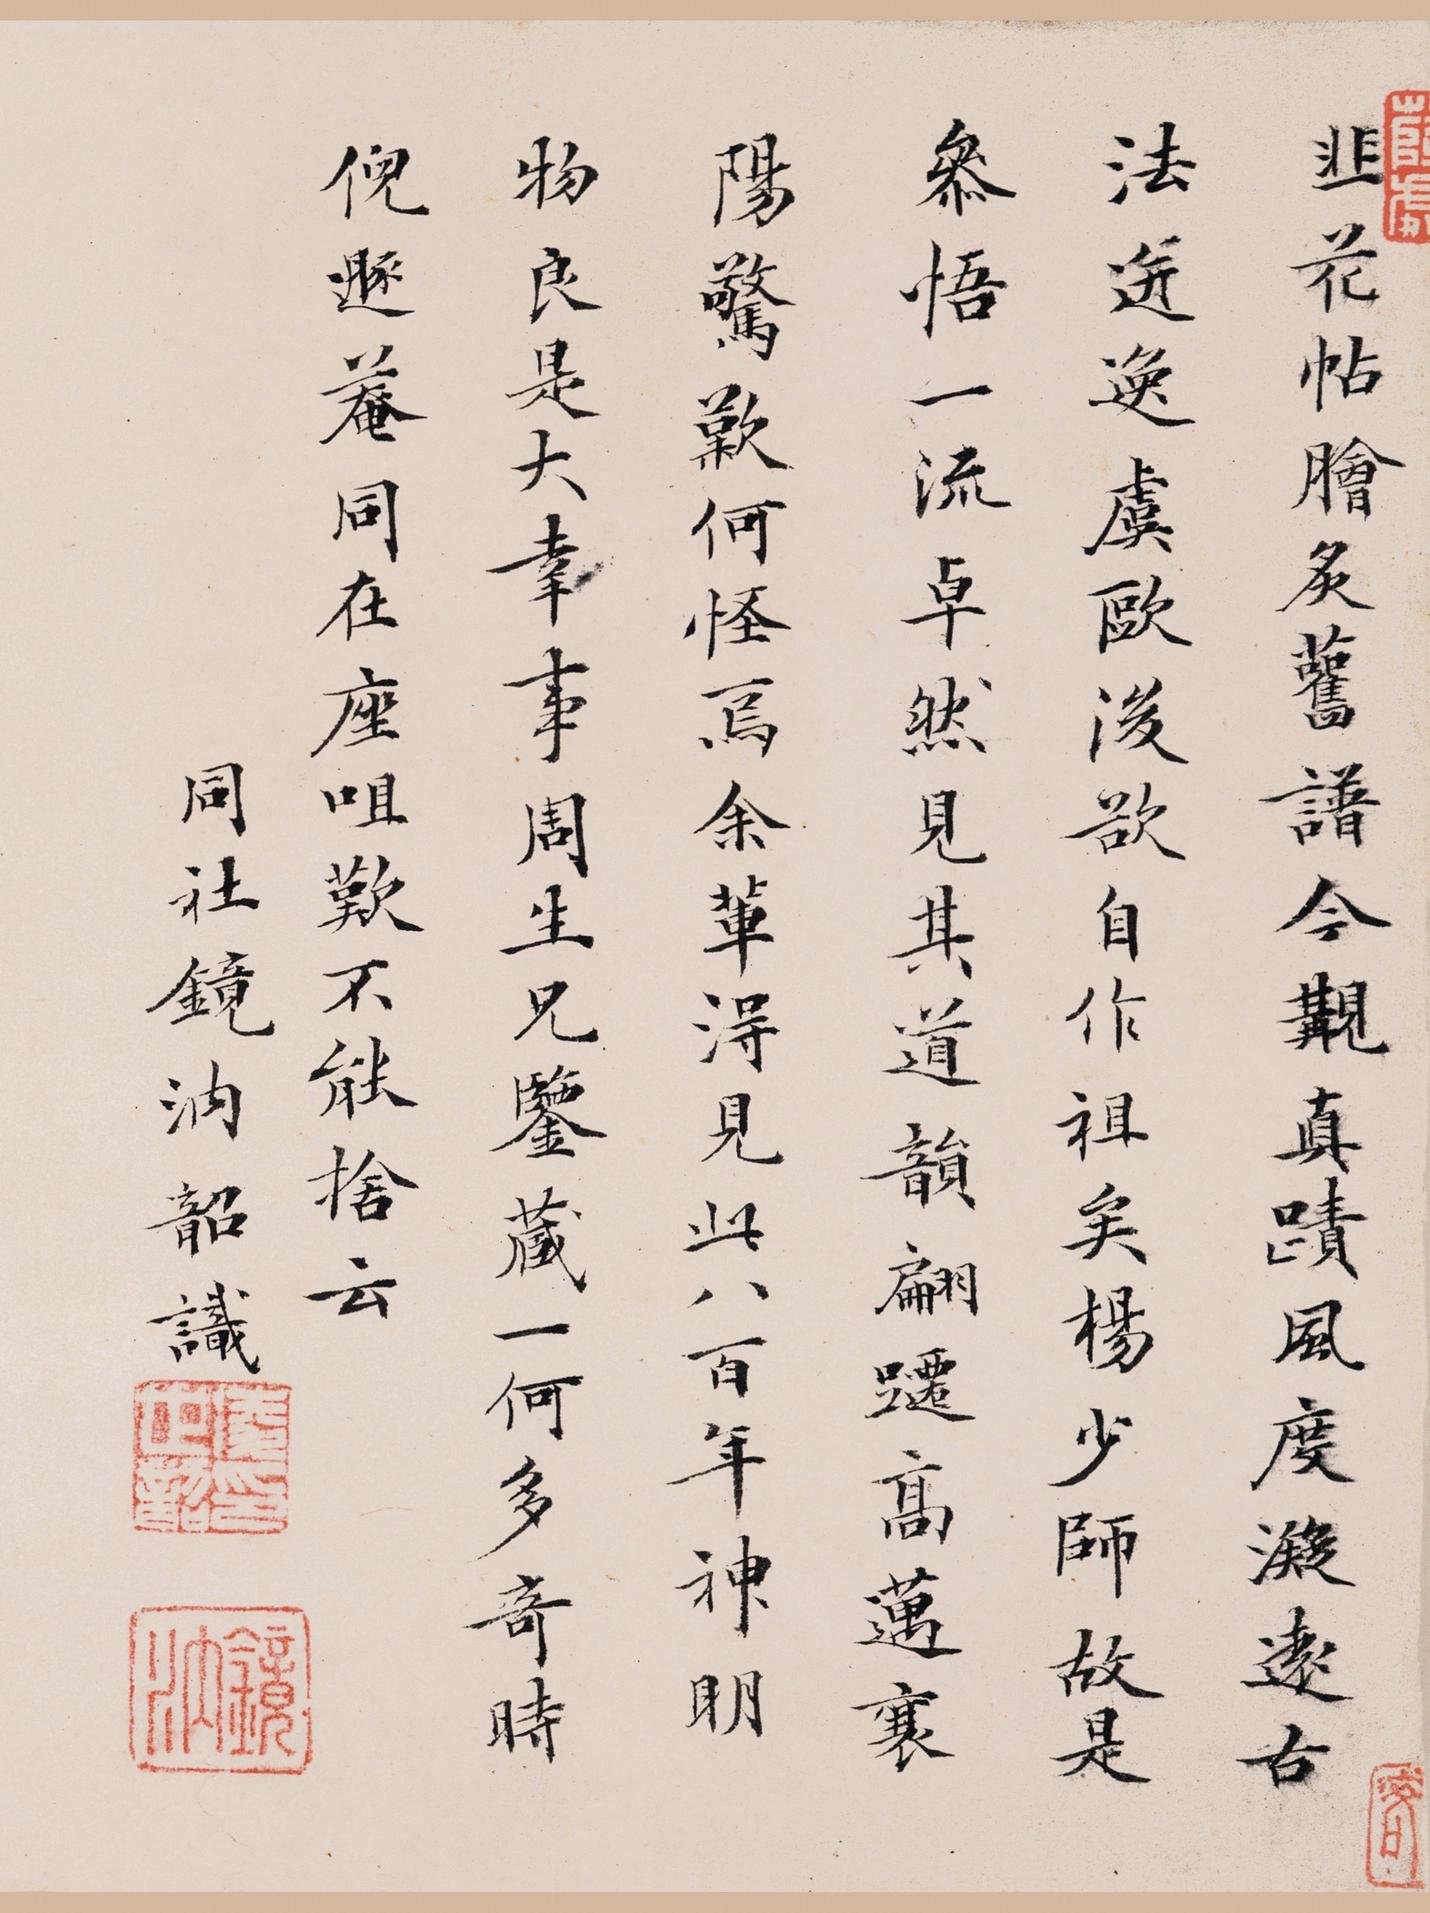 韭花帖膾炙舊譜今覯真蹟風度凝遠古
法迸逸虞歐後欲自作祖矣楊少師故是
叅悟一流卓然見其道韻翩躚高邁襄
陽驚歎何怪焉余輩得見此八百年神明
物良是大幸事周生兄鑒藏一何多奇時
倪遯菴同在座咀歎不能捨云
同社鏡汭韶識
鏡汭